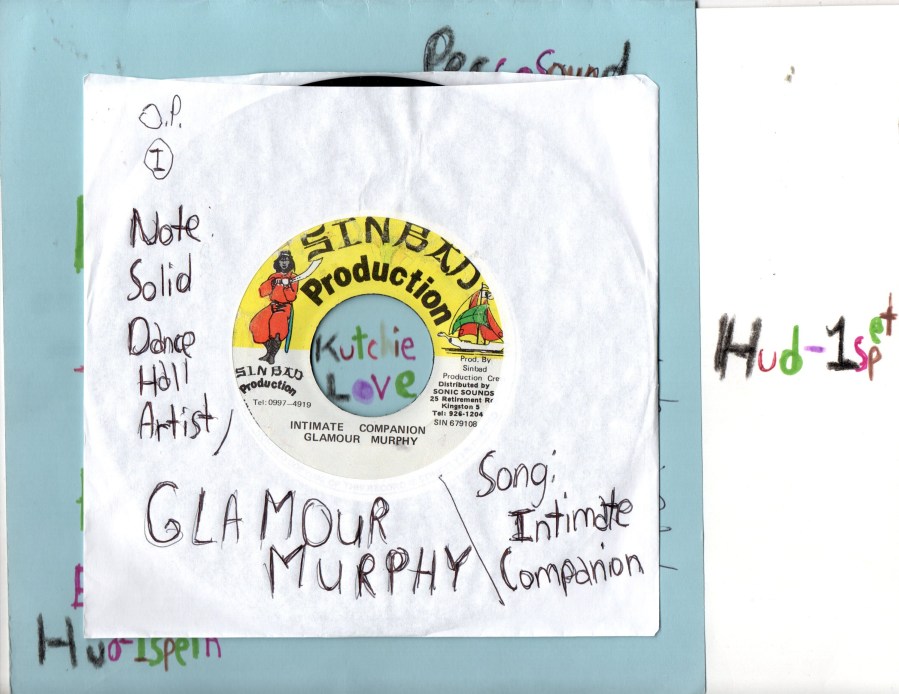 O.P.
I
Note:
Solid
Dance
Hall
Artist,
GLAMOUR
MURPHY
Song:
Intimate
Companion
SINBAD
Production
SINBAD
Production
Tel: 0997-4919
Kutchie
Love
Prod. By
Sinbad
Production Cre
Distributed by
SONIC SOUNDS
25 Retirement R
Kingston 5
Tel: 926-1204
SIN 679108
INTIMATE COMPANION
GLAMOUR MURPHY
Hud-1spet